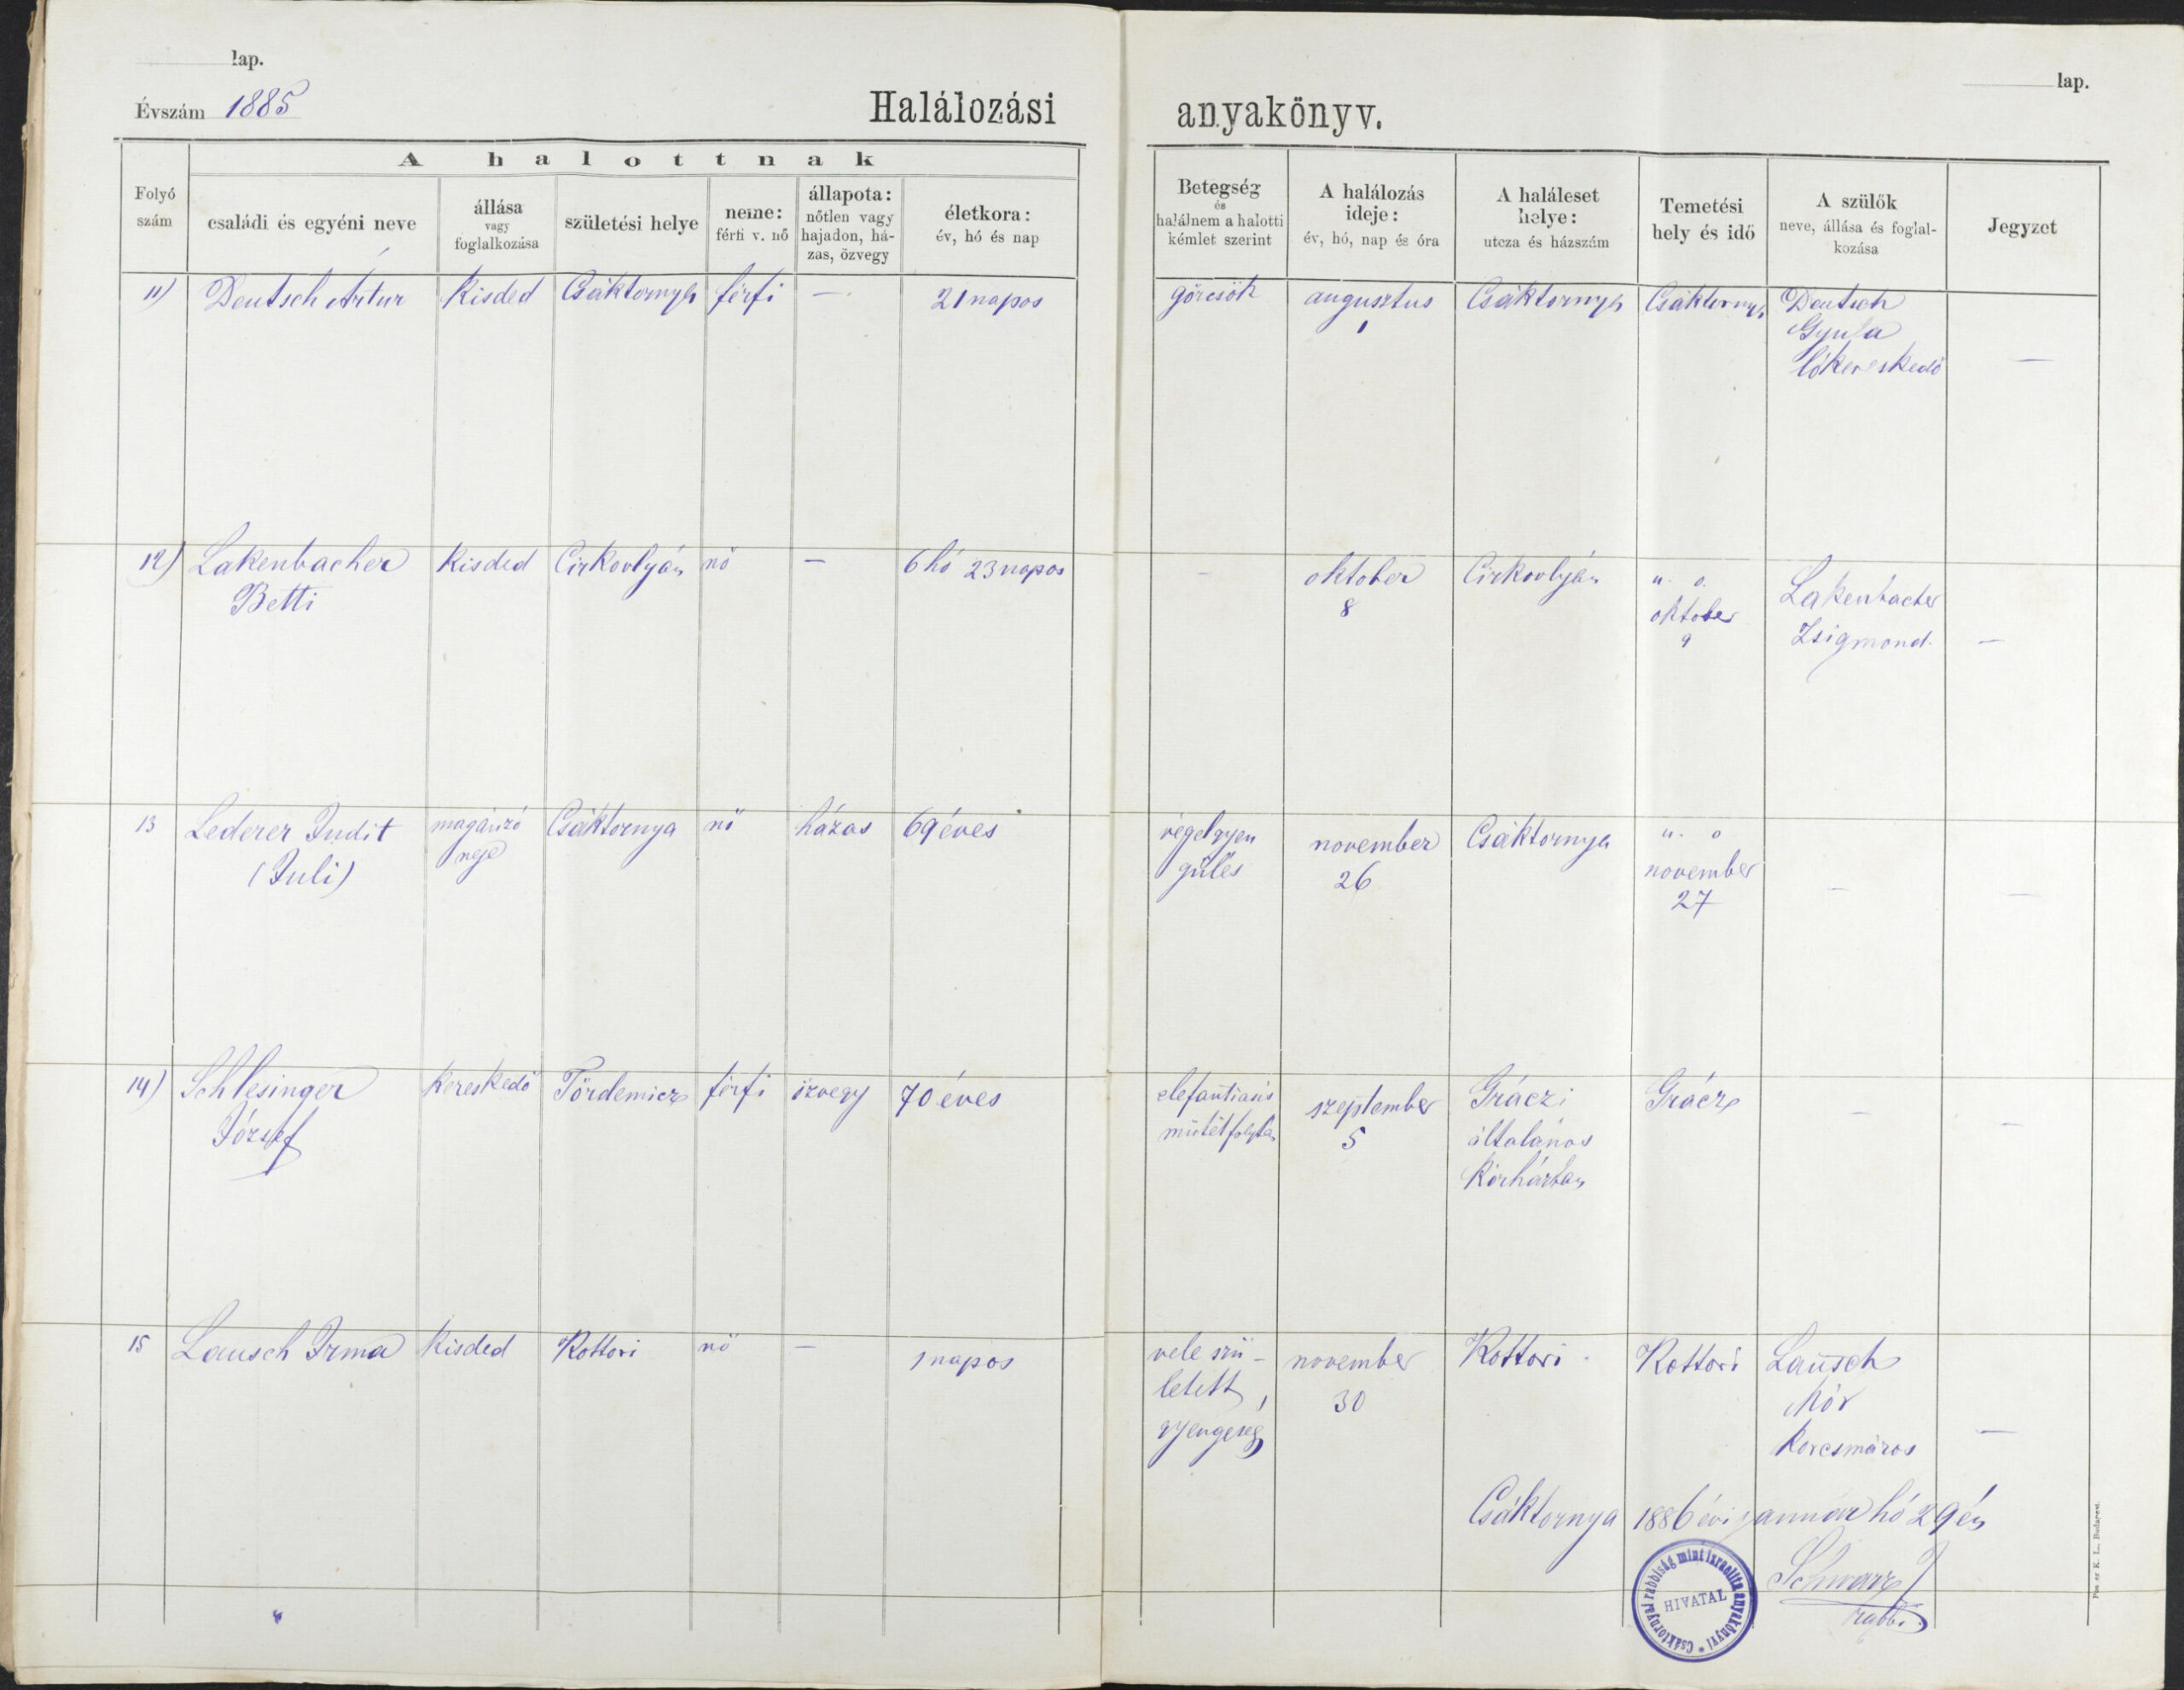 lap.
Évszám 1885
Halálozási anyakönyv.
lap.
A halottnak
Folyó szám
családi és egyéni neve
állása vagy foglalkozása
születési helye
neme: férfi v. nő
állapota: nőtlen vagy hajadon, há-zas, özvegy
életkora: év, hó és nap
Betegség és halálnem a halotti kémlet szerint
A halálozás ideje: év, hó, nap és óra
A haláleset helye: utcza és házszám
Temetési hely és idő
A szülők neve, állása és foglal-kozása
Jegyzet
11) Deutsch Artur
Kisded
Csáktornya
férfi
—
21 napos
görcsök
augusztus
1
Csáktornya
Csáktornya
Deutsch
Gyula
lókereskedő
—
12) Lakenbacher
Betti
Kisded
Cirkovlyán
nő
—
6 hó 23 napos
—
oktober
8
Cirkovlyán
u. o.
oktober
9
Lakenbacher
Zsigmond.
—
13 Lederer Judit
(Juli)
magánzó
neje
Csáktornya
nő
házas
69 éves
végelgyen
gülés
november
26
Csáktornya
u. o
november
27
—
—
14) Schlesinger
József
Kereskedő
Tördemicz
férfi
özvegy
70 éves
elefantiasis
műtét folytán
szeptember
5
Gráczi
általános
Kórházban
Grácz
—
—
15 Lausch Irma
Kisded
Kottori
nő
—
1 napos
vele szü-
letett
gyengeség
november
30
Kottori
Kottori
Lausch
Mór
Korcsmáros
—
Csáktornya 1886 évi január hó 29én
Schwarz J
rabbi
Csáktornyai rabbiság mint izraelita anyakönyvi
HIVATAL